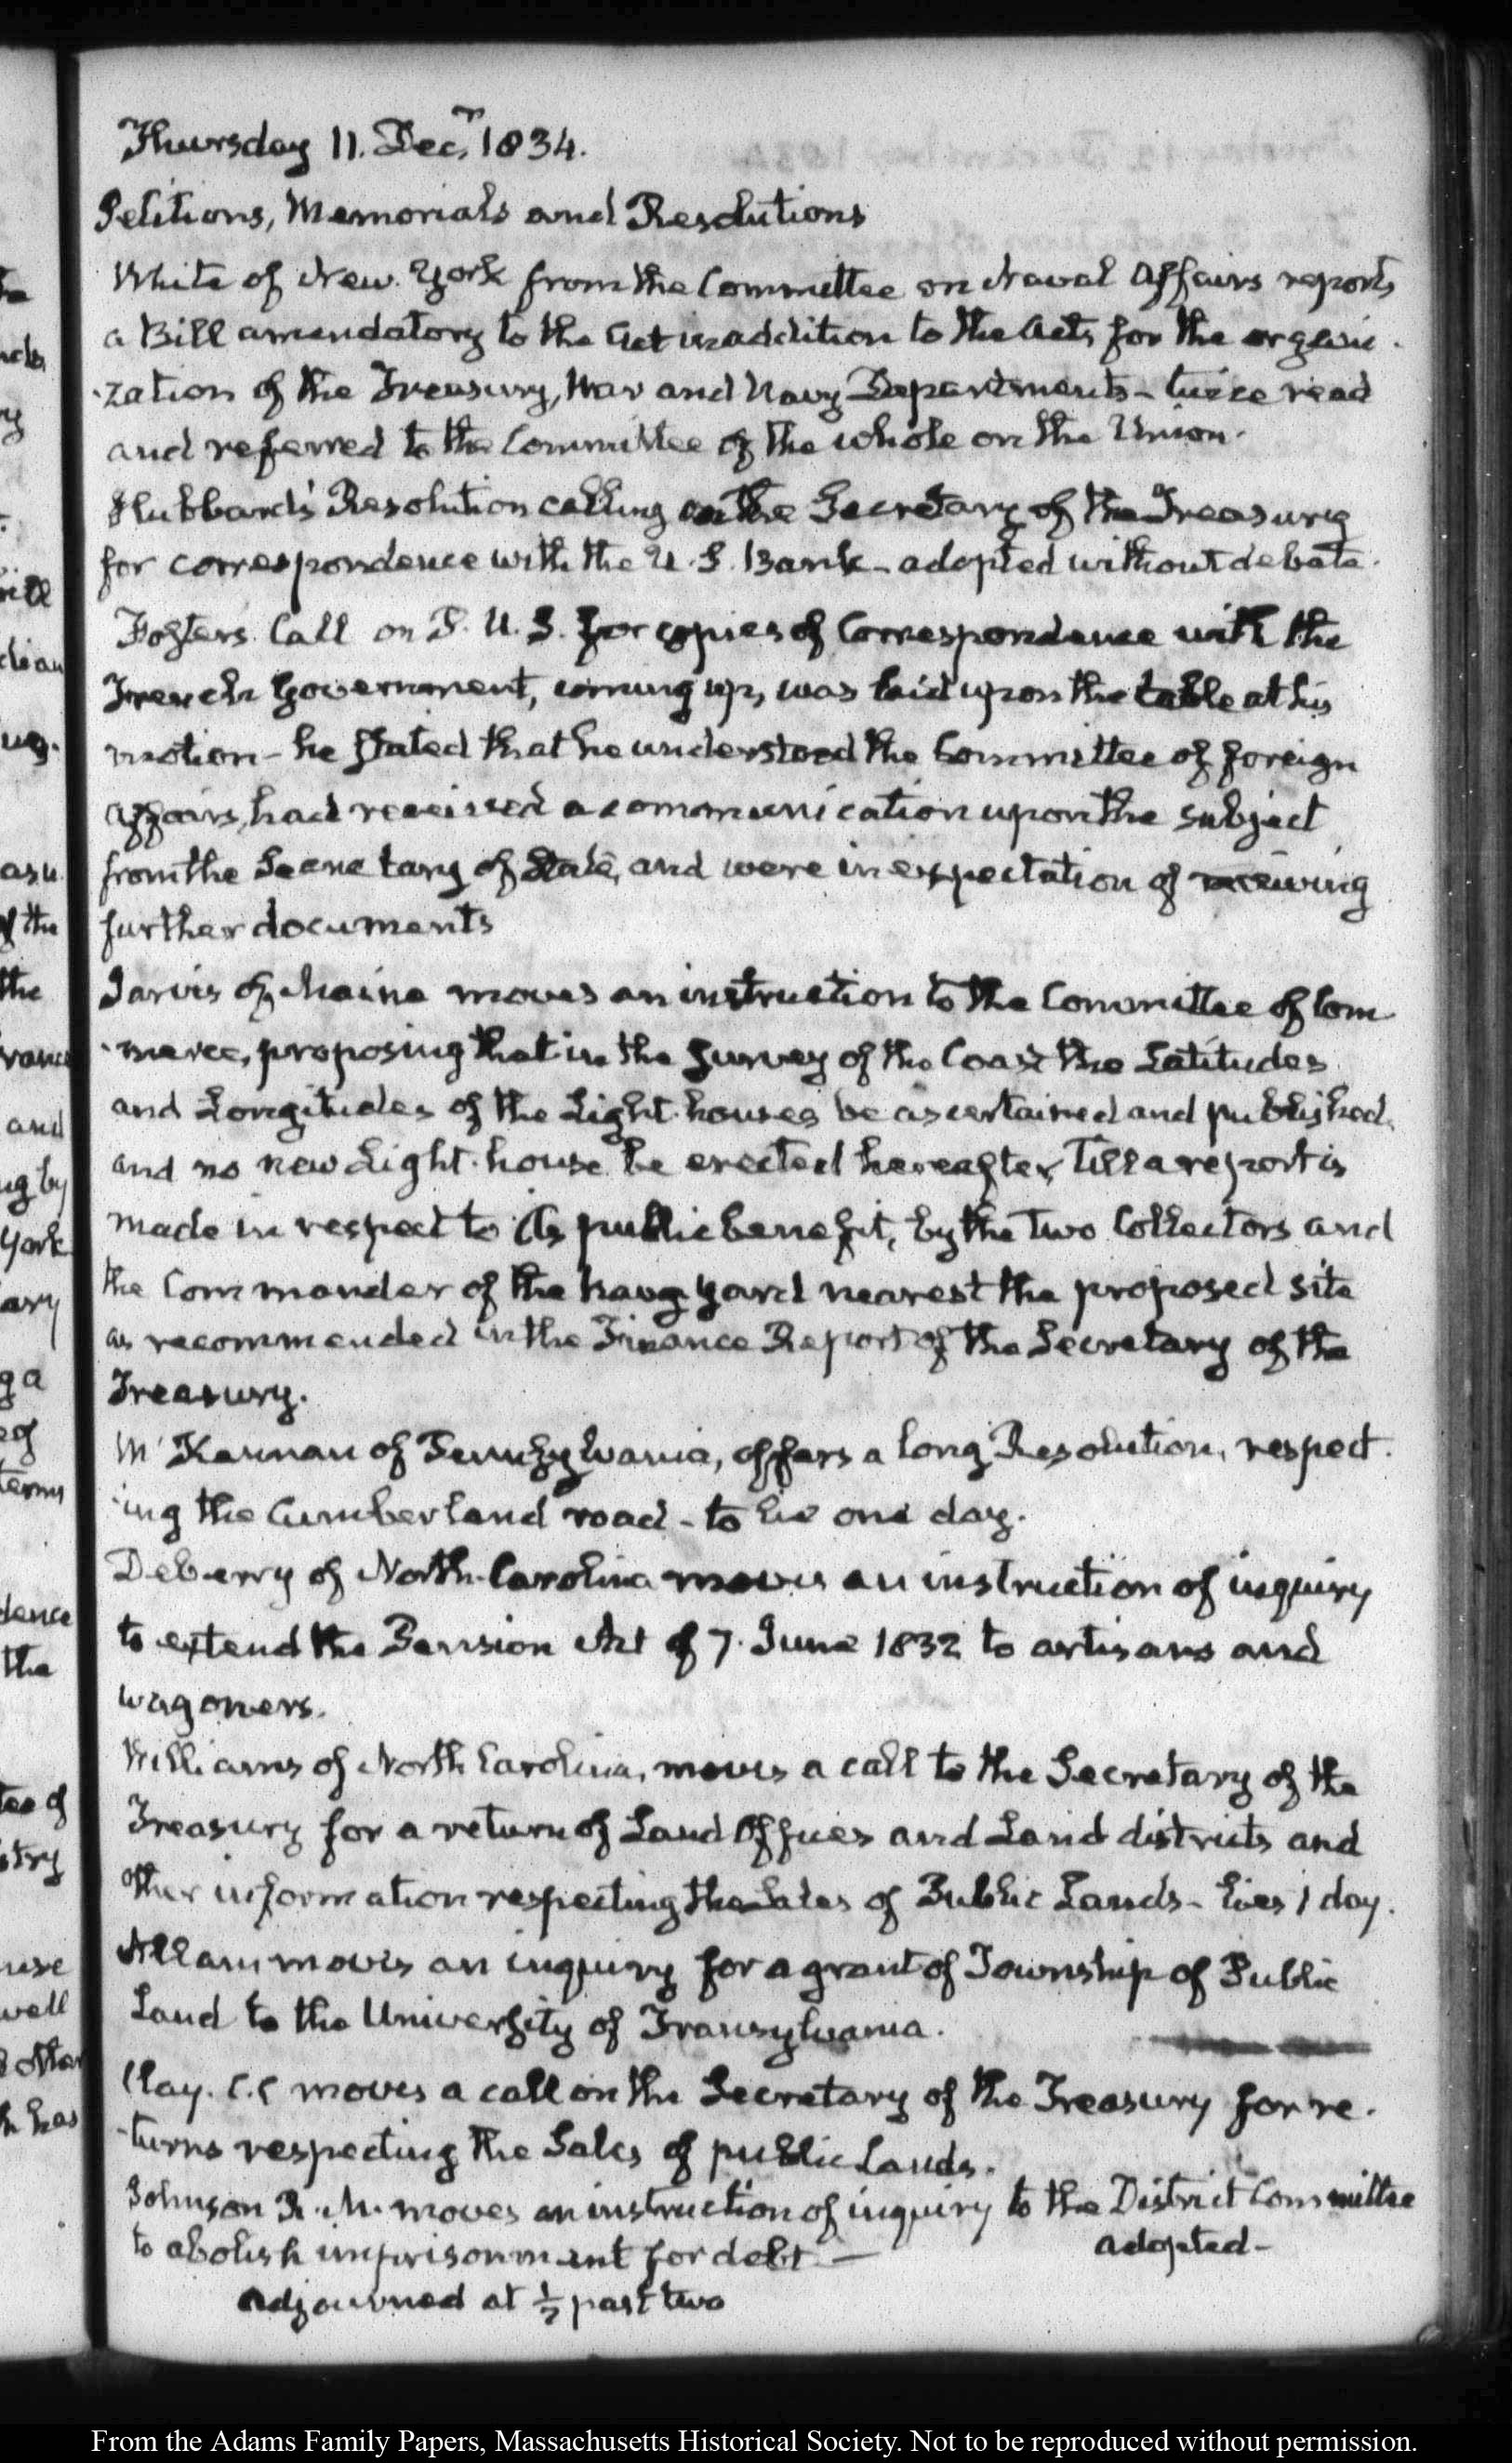 Thursday 11. Decr. 1834.
Petitions, Memorials and Resolutions
White of New York from the Committee on Naval Affairs reports
a Bill amendatory to the Act in addition to the Acts for the organi-
-zation of the Treasury, War and Navy Departments - twice read
and referred to the Committee of the whole on the Union.
Hubbard's Resolution calling on the Secretary of the Treasury
for correspondence with the U.S. Bank - adopted without debate.
Foster's Call on P. U.S. for copies of Correspondence with the
French Government, coming up, was laid upon the table at his
motion - he stated that he understood the Committee of foreign
affairs, had received a communication upon the subject
from the Secretary of State, and were in expectation of receiving
further documents
Jarvis of Maine moves an instruction to the Committee of Com
-merce, proposing that in the Survey of the Coast the Latitudes
and Longitudes of the Light-houses be ascertained and published,
and no new Light-house be erected hereafter, till a report is
made in respect to its public benefit, by the two Collectors and
the Commander of the Navy Yard nearest the proposed site
as recommended in the Finance Report of the Secretary of the
Treasury.
Mc Kennan of Pennsylvania, offers a long Resolution, respect-
-ing the Cumberland road - to lie one day.
Deberry of North-Carolina moves an instruction of inquiry
to extend the Pension Act of 7. June 1832 to artisans and
wagoners.
Williams of North Carolina, moves a call to the Secretary of the
Treasury for a return of Land Offices and Land districts and
other information respecting the Sales of Public Lands - lies 1 day.
Allan moves an inquiry for a grant of Township of Public
Land to the University of Transylvania.
Clay. C.C moves a call on the Secretary of the Treasury for re-
-turns respecting the Sales of public Lands.
Johnson R. M. moves an instruction of inquiry to the District Committee
to abolish imprisonment for debt — adopted -
Adjourned at ½ past two
From the Adams Family Papers, Massachusetts Historical Society. Not to be reproduced without permission.